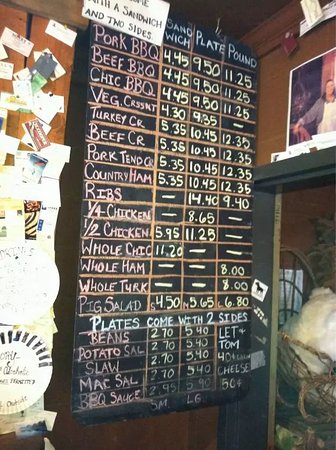 WITH A SANDWICH
AND TWO SIDES.
SANDWICH PLATE POUND
PORK BBQ 4.45 9.50 11.25
BEEF BBQ 4.45 9.50 11.25
CHIC BBQ 4.45 9.50 11.25
VEG. CRSSNT 4.30 9.35 —
TURKEY CR 5.35 10.45 12.35
BEEF CR 5.35 10.45 12.35
PORK TEND CR 5.35 10.45 12.35
COUNTRY HAM 5.35 10.45 12.35
RIBS — 14.40 9.40
1/4 CHICKEN — 8.65 —
1/2 CHICKEN 5.95 11.25 —
WHOLE CHIC 11.20 — —
WHOLE HAM — — 8.00
WHOLE TURK — — 8.00
PIG SALAD S 4.50 M 5.65 L 6.80
PLATES COME WITH 2 SIDES
BEANS 2.70 5.40 LET +
POTATO SAL 2.70 5.40 TOM
SLAW 2.70 5.40 40¢
MAC SAL 2.70 5.40 CHEESE
BBQ SAUCE 2.95 5.40 50¢
SM. LG.